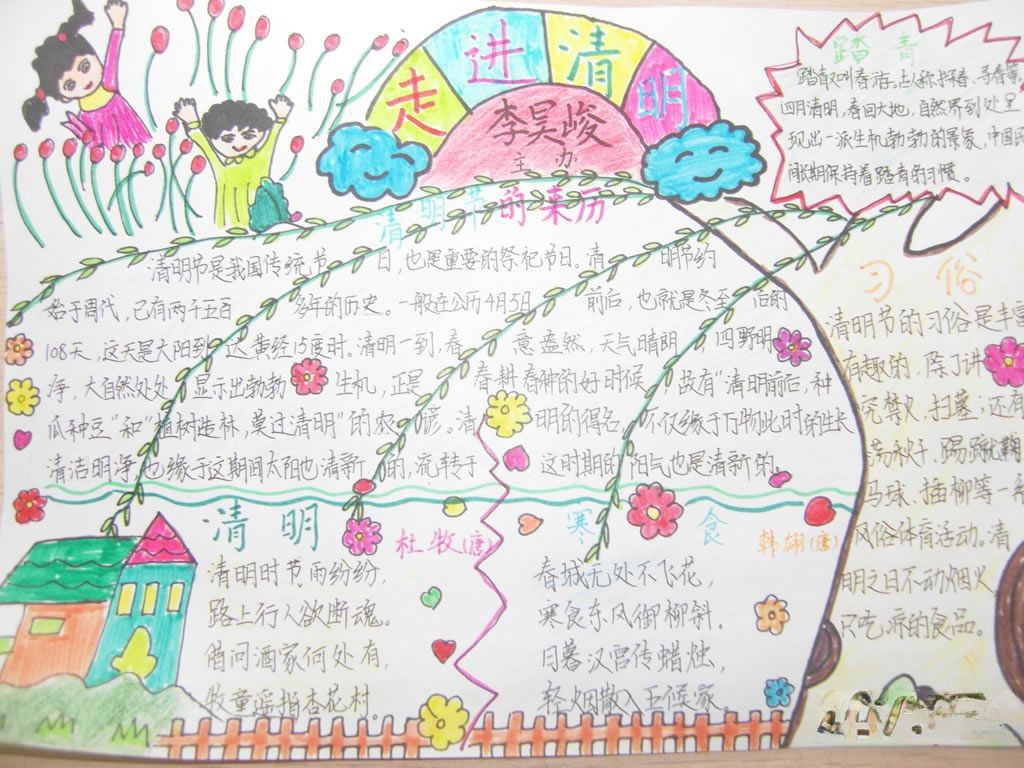 走进清明
李昊峻
主办
踏青
踏青又叫春浴。古人称探春、寻春等。
四月清明，春回大地，自然界到处呈
现出一派生机勃勃的景象，中国民
间长期保持着踏青的习惯。
清明节的来历
清明节是我国传统节日，也是重要的祭祀节日，清明节约
始于周代，已有两千五百多年的历史。一般在公历4月5日前后，也就是冬至后的
108天，这天是太阳到达黄经15度时。清明一到，春意盎然，天气晴朗，四野明
净，大自然处处显示出勃勃生机，正是春耕春种的好时候，故有“清明前后，种
瓜种豆”和“植树造林，莫过清明”的农谚。清明的得名，不仅缘于万物此时的生长
清洁明净，也缘于这期间太阳也清新的，流转于这时期的阳气也是清新的。
习俗
清明节的习俗是丰富
有趣的，除了讲
究禁火、扫墓；还有
荡秋千、踢蹴鞠
马球、插柳等一系
风俗体育活动。清
明之日不动烟火
只吃凉的食品。
清明
杜牧(唐)
清明时节雨纷纷，
路上行人欲断魂。
借问酒家何处有，
牧童遥指杏花村。
寒食
韩翃(唐)
春城无处不飞花，
寒食东风御柳斜。
日暮汉宫传蜡烛，
轻烟散入五侯家。